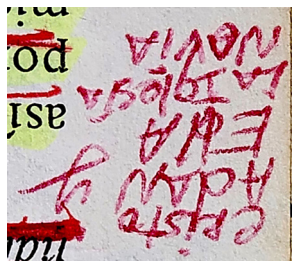 cristo
Adan y
EVA
LA Iglesia
NOVIA